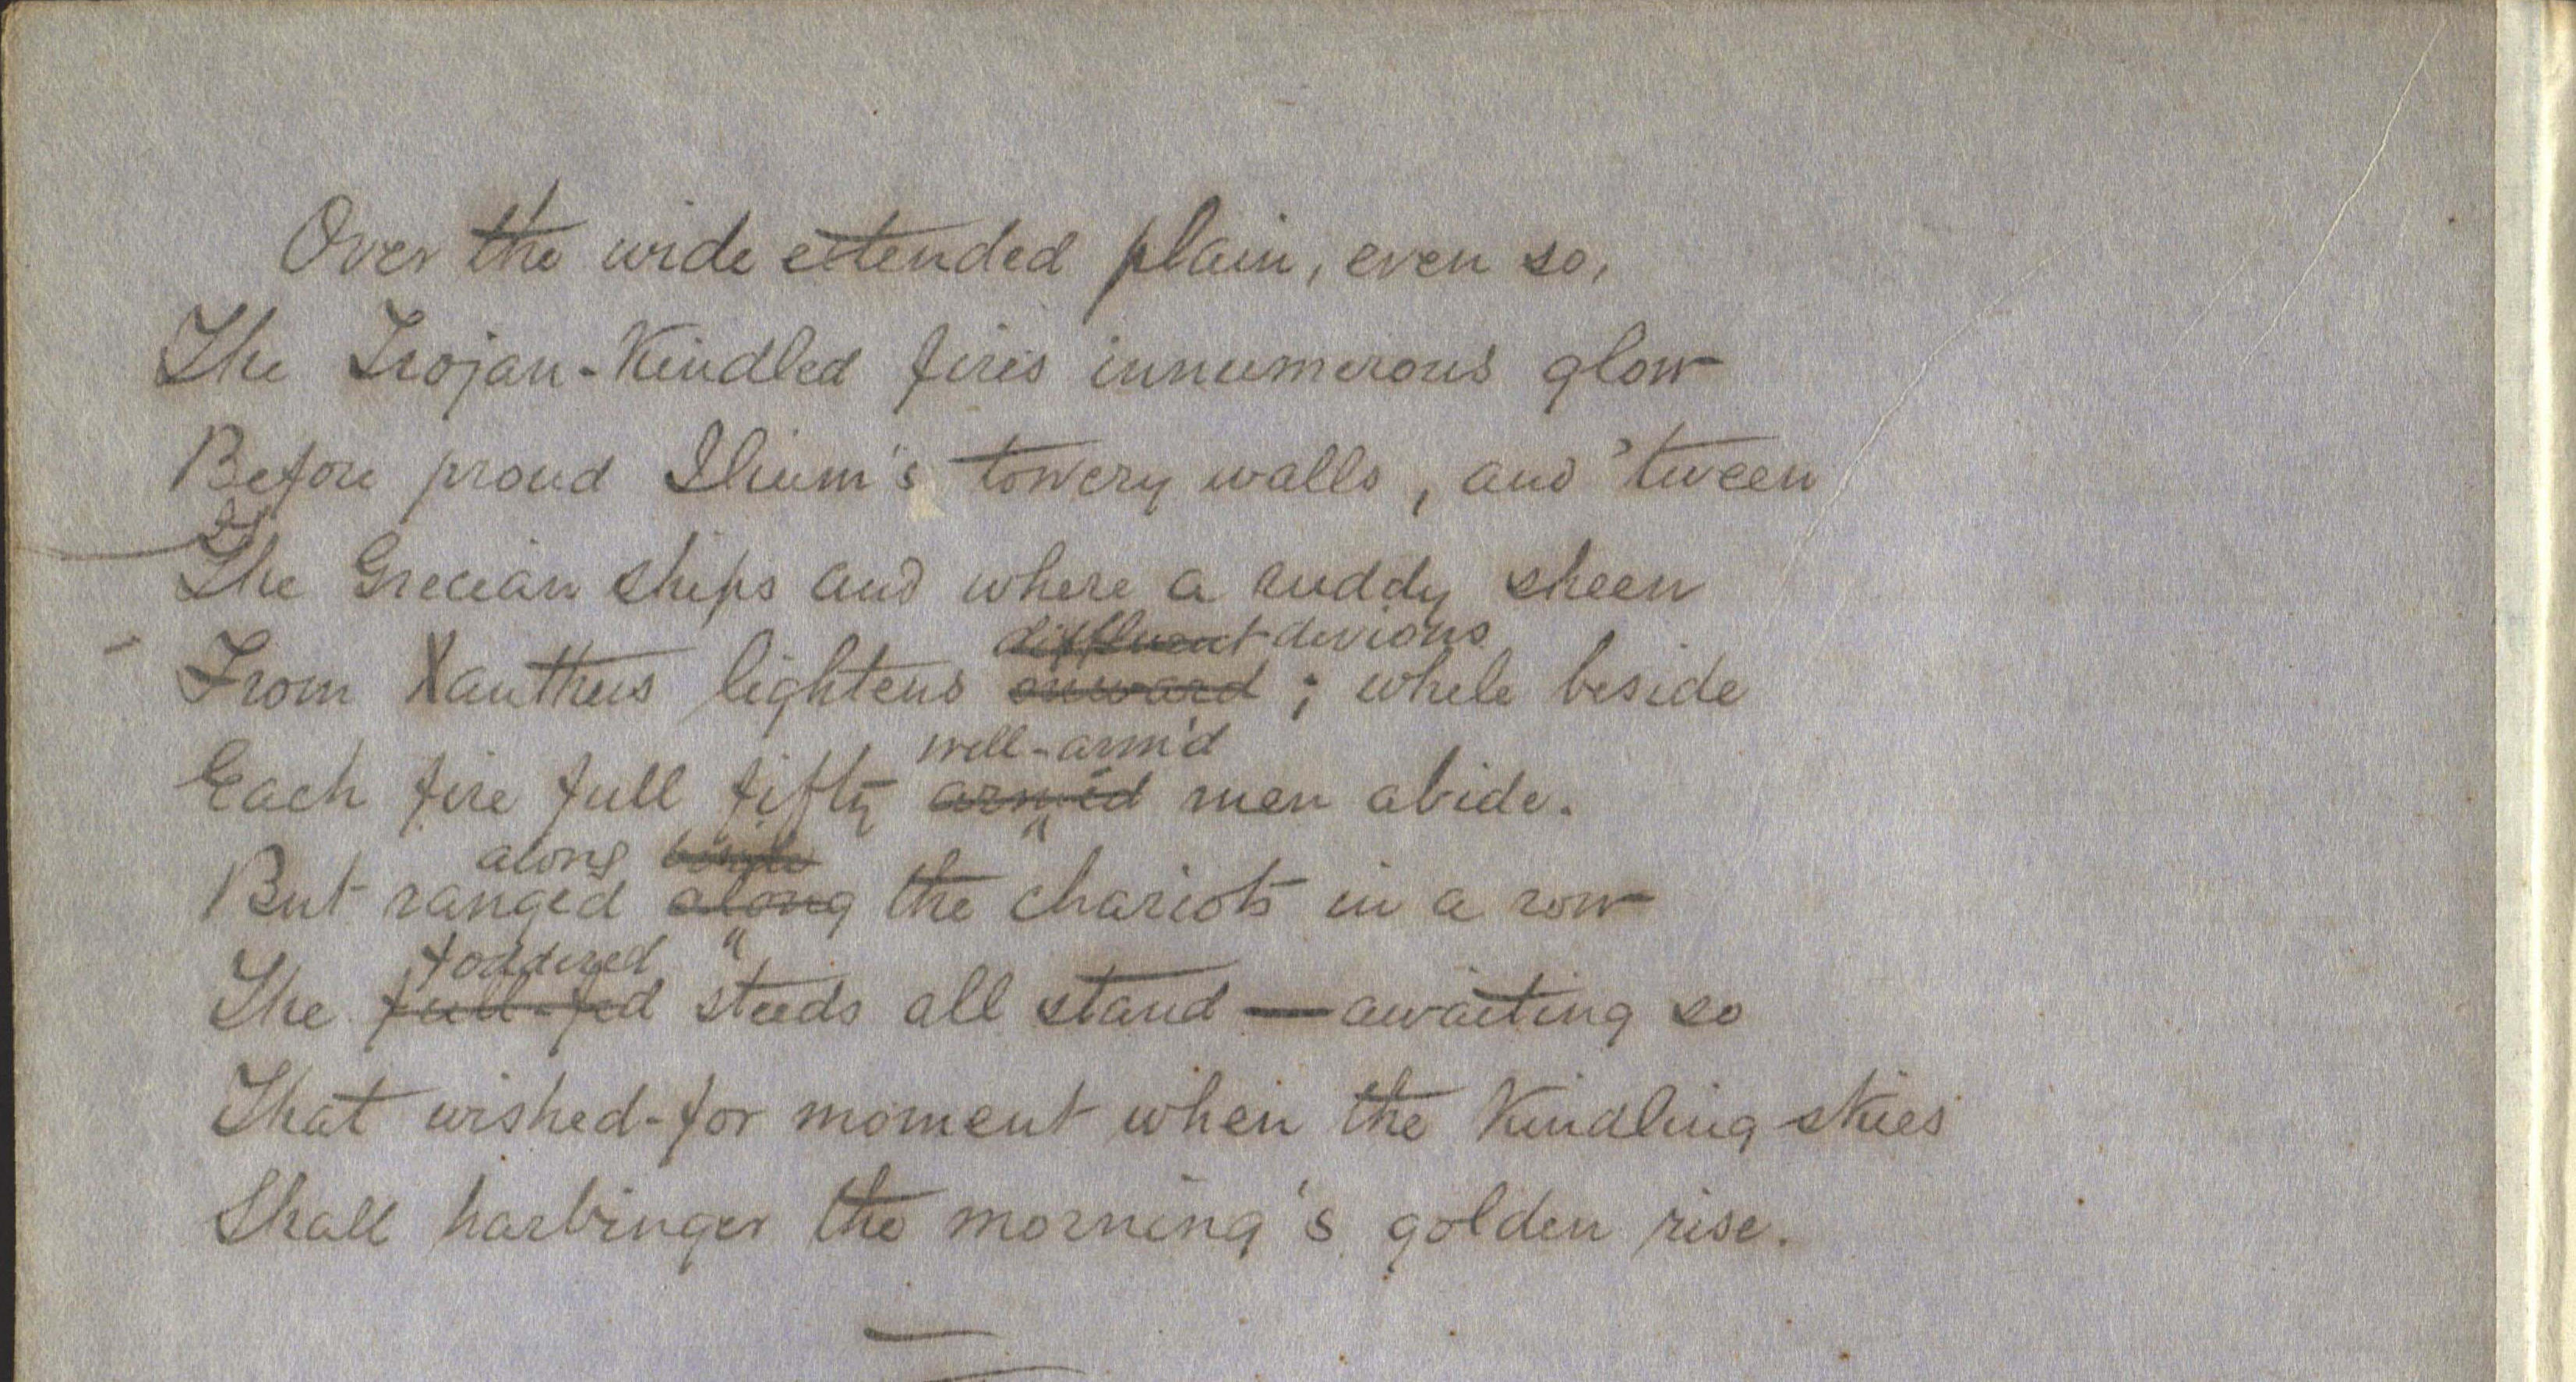 Over the wide extended plain, even so,
The Trojan-Kindled fires innumerous glow
Before proud Ilium's towery walls, and 'tween
The Grecian ships and where a ruddy sheen
diffluent devious
From Xanthus lightens onward; while beside
well-arm'd
Each fire full fifty armed men abide.
along
But ranged along the chariots in a row
foddered
The full-fed steeds all stand — awaiting so
That wished-for moment when the Kindling skies
Shall harbinger the morning's golden rise.